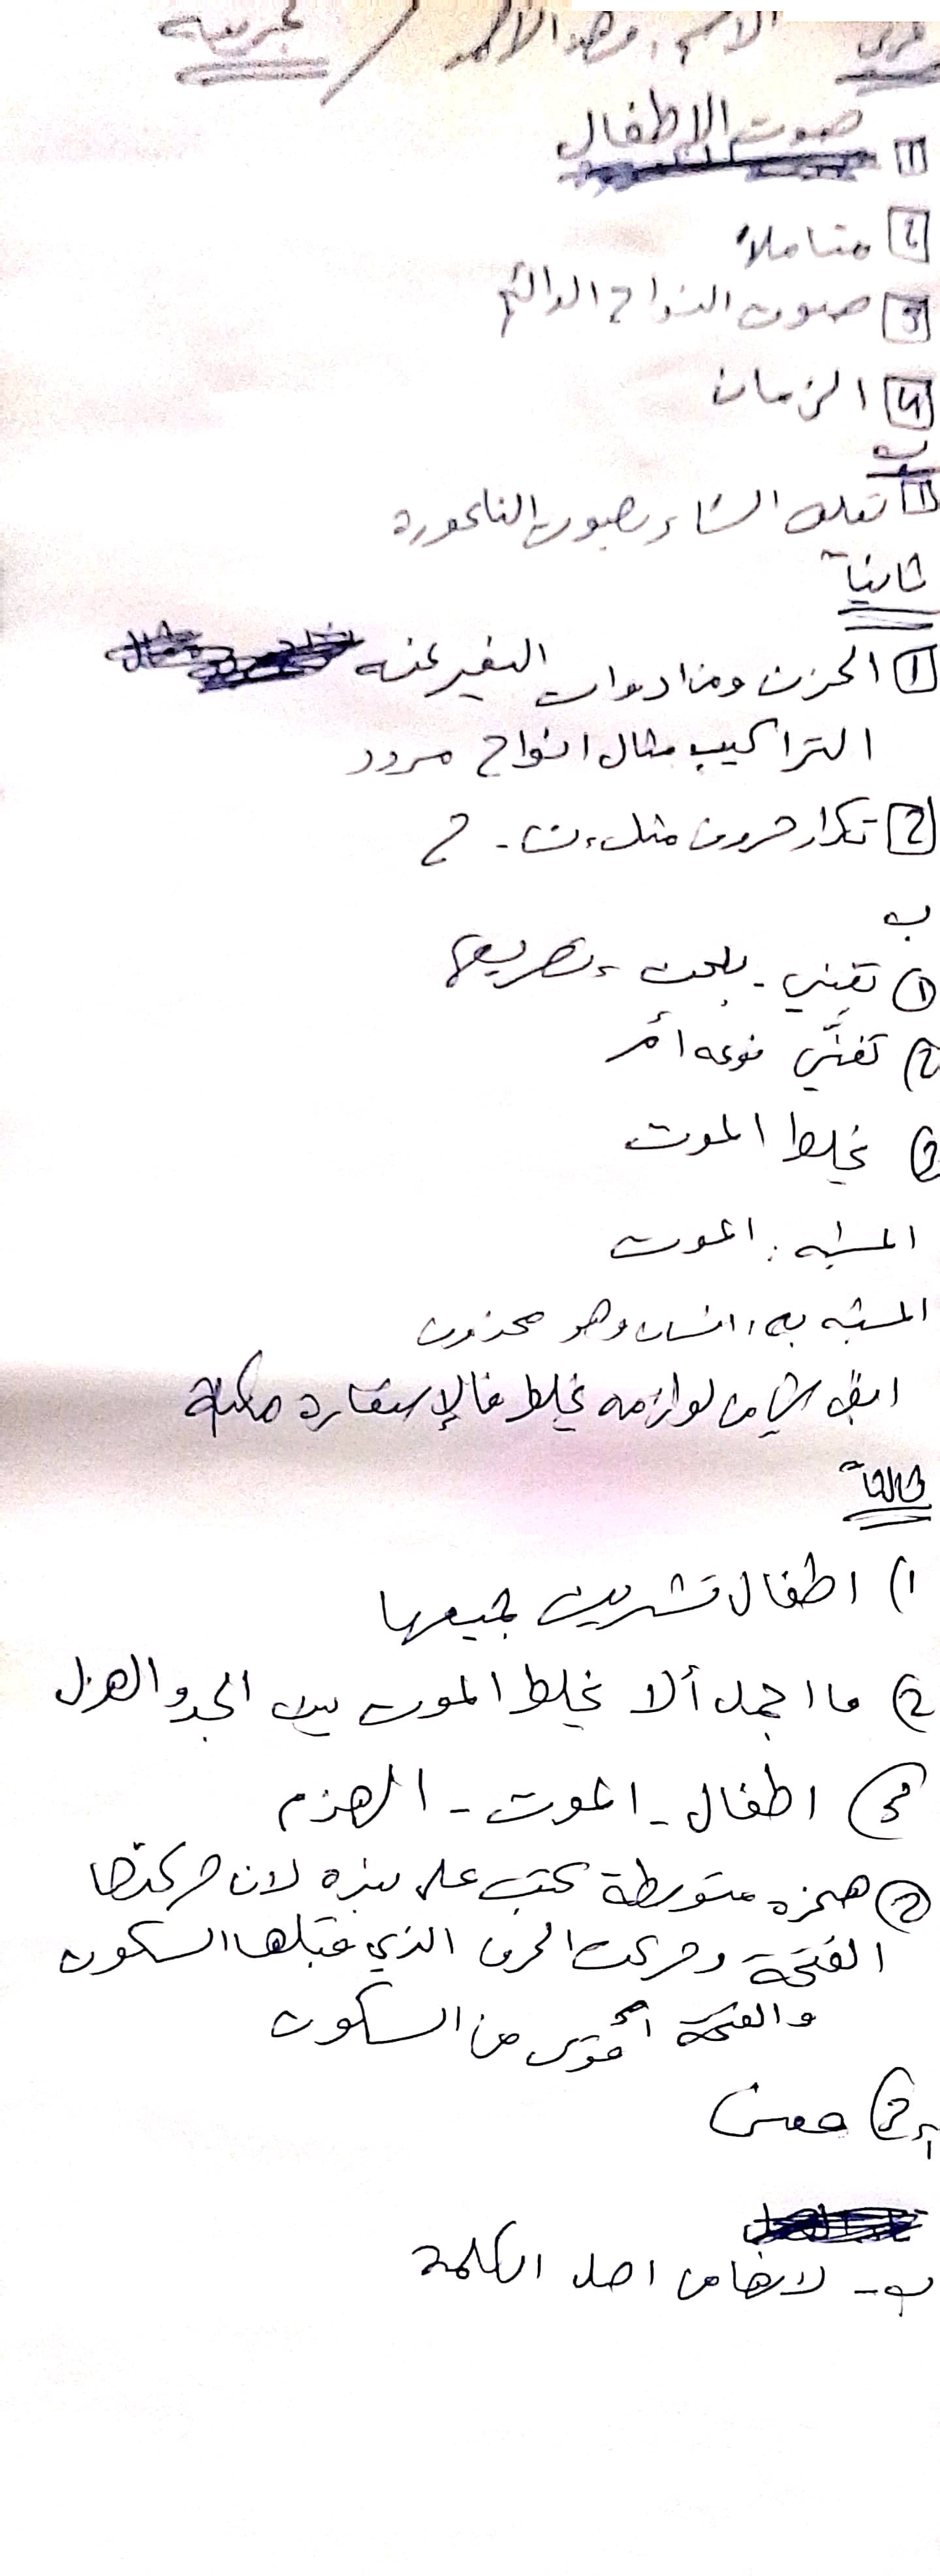 عربي الاسم: وهد الاحمد / تجريبية
1 صوت الاطفال
2 متاملاً
3 صوت النواح الدائم
4 الزمان
ب
1 تعلق الشاعر بصوت الناعورة
ثانياً
1 الحزن ومن ادوات التعبير عنه
التراكيب مثال انواح مردد
2 تكرار حروف مثل، ن - ح
ب
1 تغني - بلحن، تصريعها
2 تغنّي نوعه أمر
3 يخلط الموت
المشبه: الموت
المشبه به: انسان وهو محذوف
ابقى شي من لوازمه يخلط فالإستعارة مكنية
ثالثاً
1) اطفال تشرين جميعها
2) ما اجمل ألا يخلط الموت بين الجد والهزل
3) اطفال - الموت - الهزم
2) همزه متوسطة كتبت على نبره لان حركتها
الفتحة وحركت الحرف الذي قبلها السكون
والفتحة أقوى من السكون
2) أ
ب - لانها من اصل الكلمة